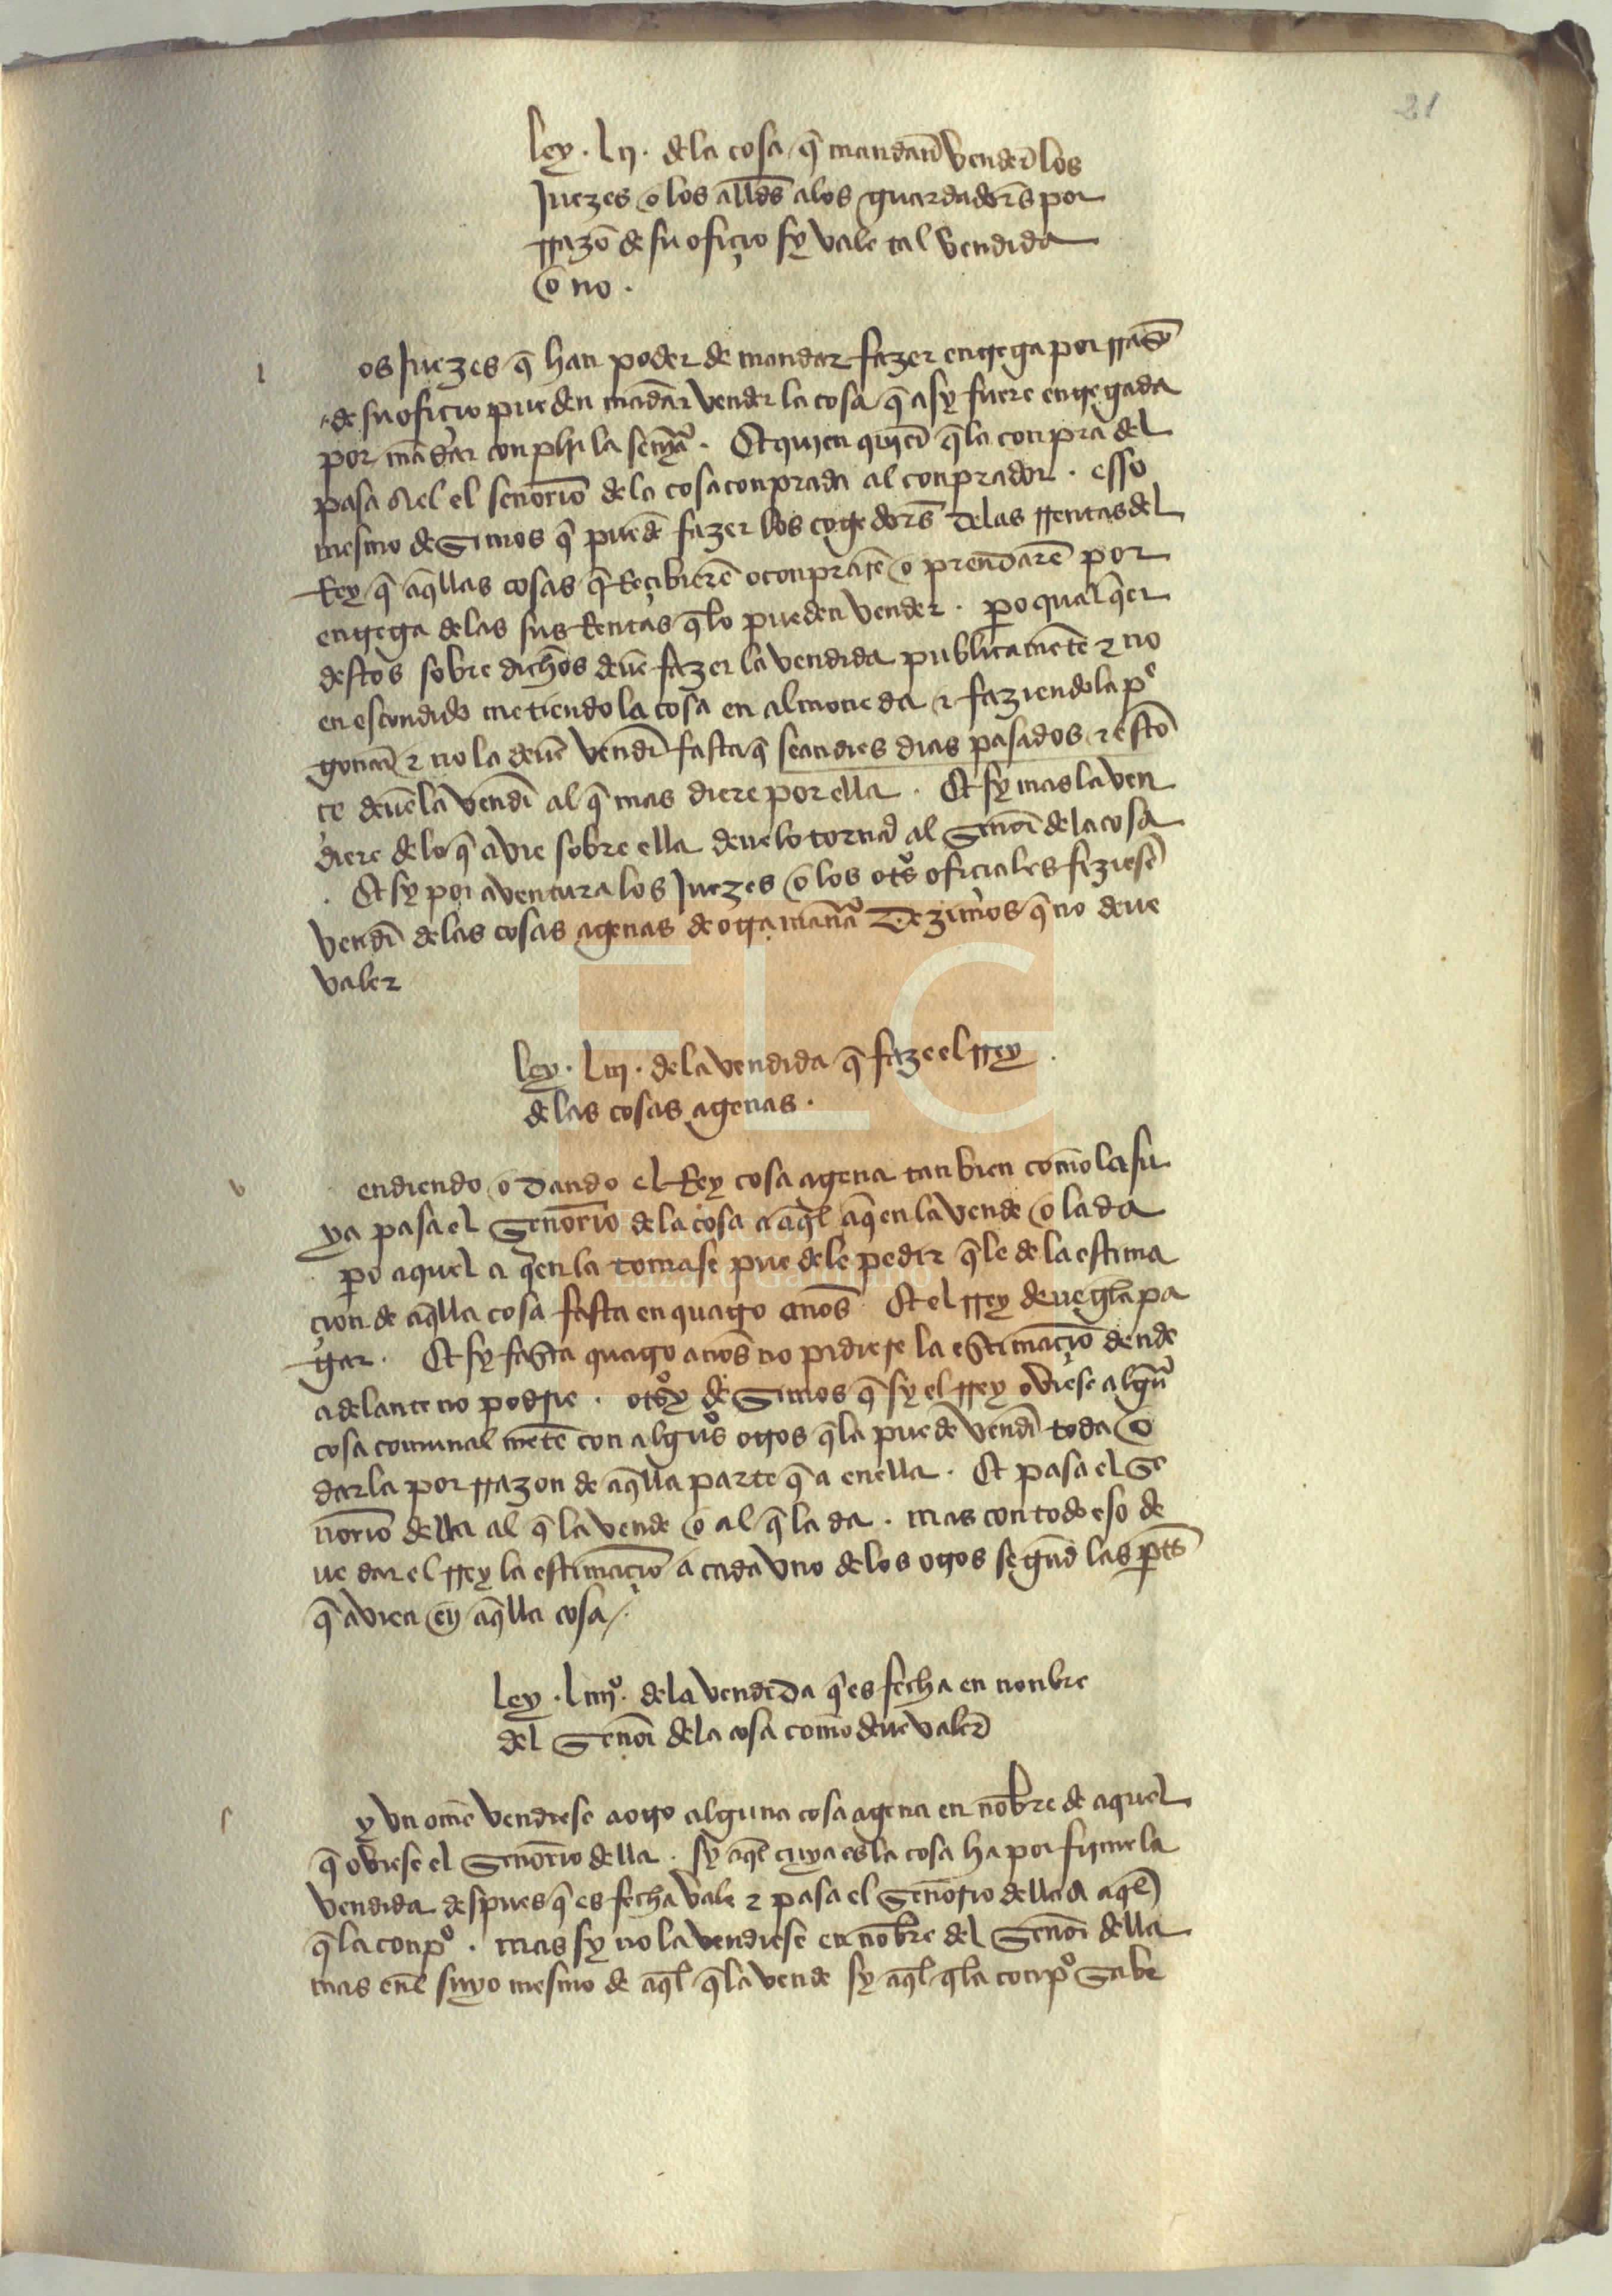 21
ley . lij . dela cosa q̃ mandarē vender los
Juezes o los allds̃ alos guardadores por
rrazõ de su ofiçio sy vale tal vendida
o no .
l os Juezes q̃ han poder de mandar fazer entrega por rrazõ
de su ofiçio pueden mãdar vender la cosa q̃ asy fuere entregada
por mãdar conplir la sentẽçia . Et quien quier q̃ la conpra del
pasa del el señorio dela cosa conprada al conprador . esso
mesmo deSimos q̃ puedẽ fazer los cogedores delas rrentas del
Rey q̃ aq̃llas cosas q̃ Reçibierẽ o conprarẽ o prendarẽ por
entrega delas sus Rentas q̃lo pueden vender . pero qual q̃er
destos sobre dichos deuẽ fazer la vendida publica mẽte & no
en escondido metiendo la cosa en almoneda & faziendola pre
gonar & no la deuẽ vender fasta q̃ sean dies dias pasados & estõ
çe deuẽla vender al q̃ mas diere por ella . Et sy mas la ven
diere delo q̃ avie sobre ella deuelo tornar al Señor dela cosa
. Et sy por aventura los Juezes o los otros ofiçiales fiziesẽ
vender delas cosas agenas de otra manera Dezimos q̃ no deue
valer
ley . liij . dela vendida q̃ faze el rrey .
delas cosas agenas .
v endiendo o Dando el Rey cosa agena tan bien como la su
ya pasa el Señorio dela cosa a aq̃l a q̃en la vende o la da
pero aquel a q̃en la tomase puedele pedir q̃ le de la estima
çion de aq̃lla cosa fasta en quatro años . Et el rrey deuegela pa
gar . Et sy fasta quatro años no pidiese la estimaçiõ dende
adelante no podrie . otrosy deSimos q̃ sy el rrey oviese algũa
cosa comunal mẽte con algũos otros q̃la puede vender toda o
darla por rrazon de aq̃lla parte q̃ a enella . Et pasa el Se
ñorio della al q̃ la vende o al q̃ la da . mas con todo eso de
ue dar el rrey la estimaçiõ a cada vno delos otros segũd las partes
q̃ avien en aq̃lla cosa /.
ley . liiijº . dela vendida q̃ es fecha en nonbre
del Señor dela cosa como deue valer
s y vn ome vendiese a otro alguna cosa agena en nõbre de aquel
q̃ oviese el Señorio della . sy aq̃l cuya es la cosa ha por firme la
vendida despues q̃ es fecha vale & pasa el Señorio della a aq̃l
q̃ la conpº . mas sy no la vendiese en nõbre del Señor della
mas enel suyo mesmo de aq̃l q̃ la vende sy aq̃l q̃la conpº Sabe
FLG
Lázaro Galdiano